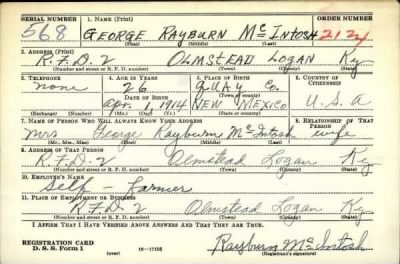 SERIAL NUMBER 1. NAME (Print) ORDER NUMBER
568 GEORGE RAYBURN McINTOSH 2121
(First) (Middle) (Last)
2. ADDRESS (Print)
R.F.D. 2 OLMSTEAD LOGAN Ky
(Number and street or R. F. D. number) (Town) (County) (State)
3. TELEPHONE 4. AGE IN YEARS 5. PLACE OF BIRTH 6. COUNTRY OF CITIZENSHIP
none 26 QUAY Co.
DATE OF BIRTH (Town or county)
Apr. 1, 1914 NEW MEXICO U.S.A
(Exchange) (Number) (Mo.) (Day) (Yr.) (State or country)
7. NAME OF PERSON WHO WILL ALWAYS KNOW YOUR ADDRESS 8. RELATIONSHIP OF THAT PERSON
Mrs George Rayburn McIntosh wife
(Mr., Mrs., Miss) (First) (Middle) (Last)
9. ADDRESS OF THAT PERSON
R.F.D-2 Olmstead Logan Ky
(Number and street or R. F. D. number) (Town) (County) (State)
10. EMPLOYER'S NAME
Self - Farmer
11. PLACE OF EMPLOYMENT OR BUSINESS
R.F.D-2 Olmstead Logan Ky
(Number and street or R. F. D. number) (Town) (County) (State)
I AFFIRM THAT I HAVE VERIFIED ABOVE ANSWERS AND THAT THEY ARE TRUE.
REGISTRATION CARD
D. S. S. Form 1 (over) 16-17105 Rayburn McIntosh
(Registrant's signature)